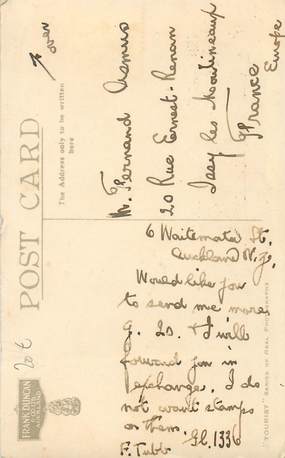 over
POST CARD
The Address only to be written
here
M. Fernand Asmus
20 Rue Ernest-Renan
Issy les Moulineaux
France
Europe
6 Waitemata St.
Auckland N.Z.
Would like you
to send me more
G. Is. & I will
forward you in
exchange. I do
not want stamps
on them. G.C. 1336
F. Tubb
20 €
FRANK DUNCAN
& CO. LTD.
AUCKLAND
"TOURIST" SERIES OF REAL PHOTOGRAPHS